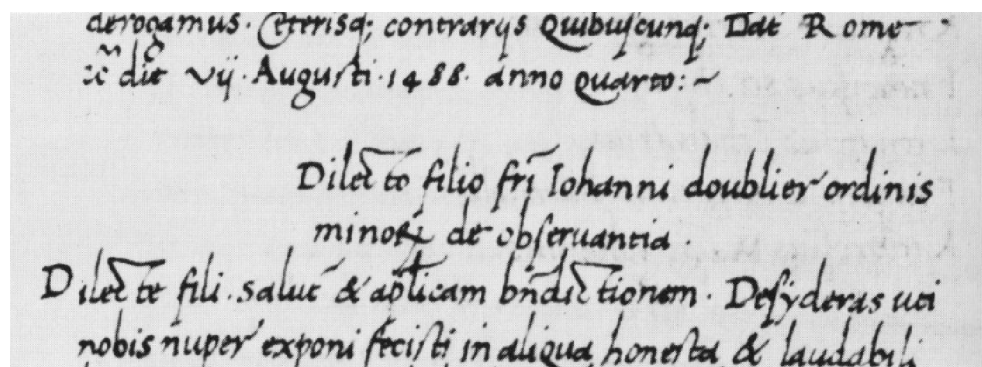 derogamus. Ceterisq; contrarijs Quibuscunq; Dat Rome
die vij Augusti 1488 anno quarto:~
Dilecto filio fr̄i Iohanni doublier ordinis
minoꝝ de obseruantia.
Dilecte fili. salut̄ & ap̄licam bn̄dictionem. Desyderas uti
nobis nuper exponi fecisti in aliqua honesta & laudabili